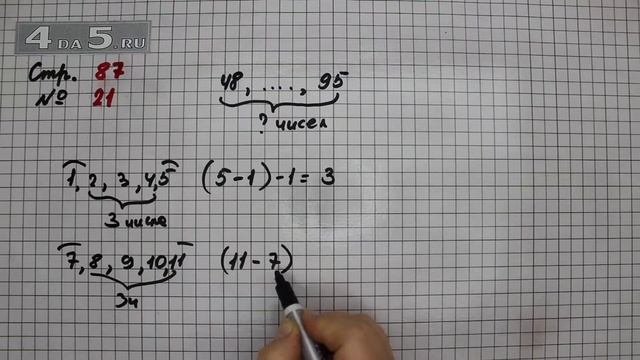 4DA5.RU
Стр. 87
№ 21
48, ...., 95
? чисел
1, 2, 3, 4, 5 (5-1)-1=3
3 числа
7, 8, 9, 10, 11 (11-7)
3ч